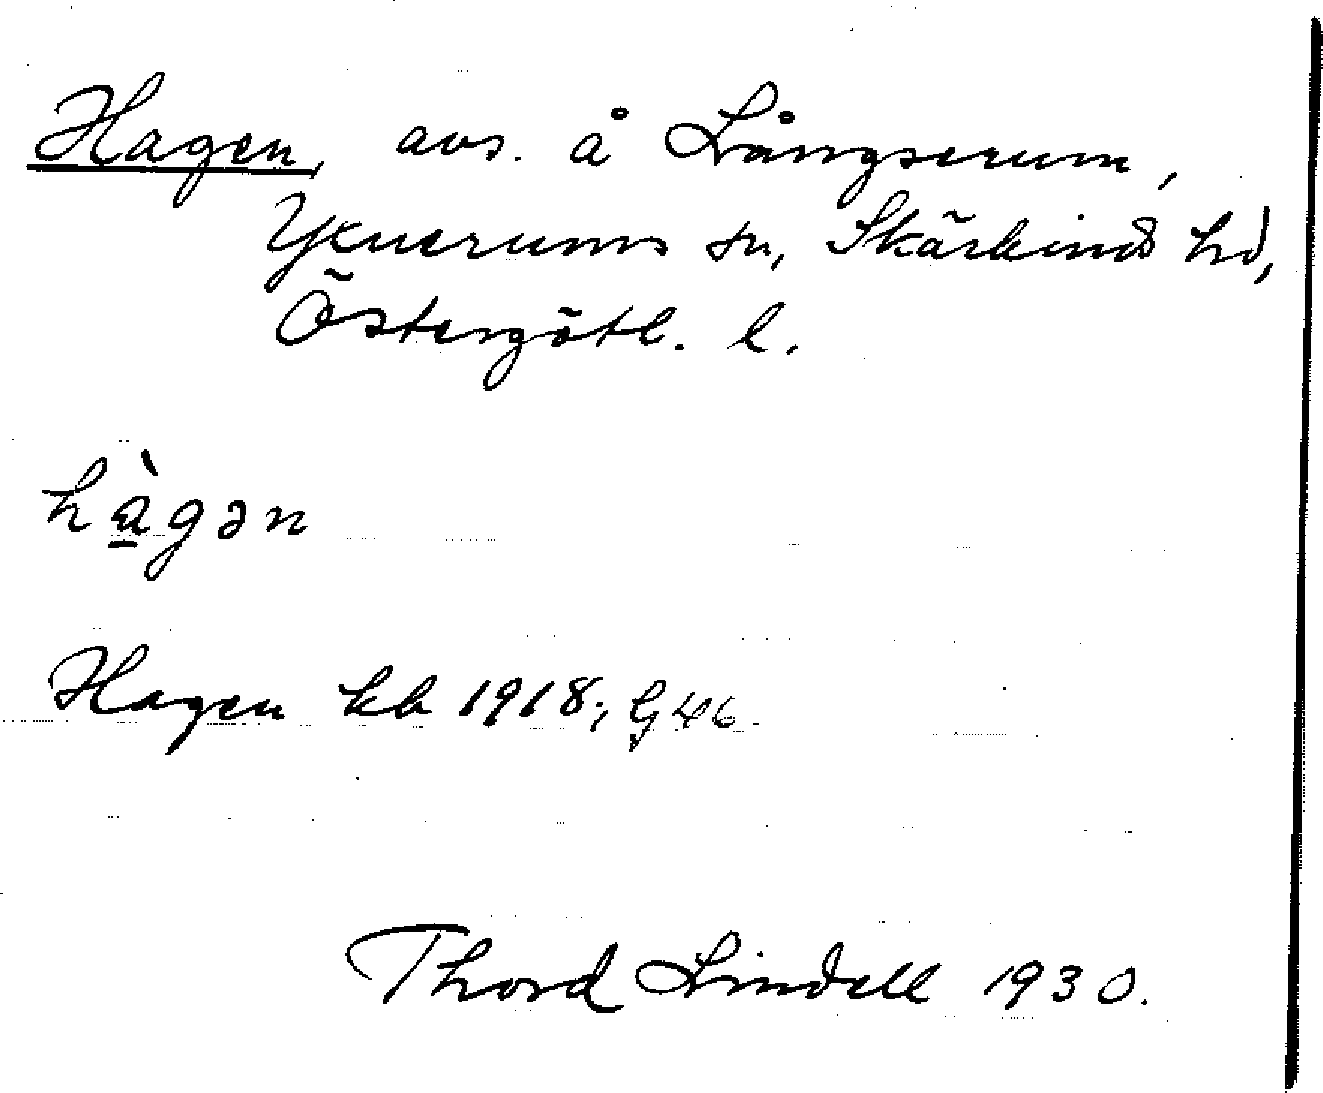 Hagen, avs. å Långserum,
Yxnerums sn, Skärkinds hd,
Östergötl. l.
hàgən
Hagen kb 1918; G 46.
Thord Lindell 1930.